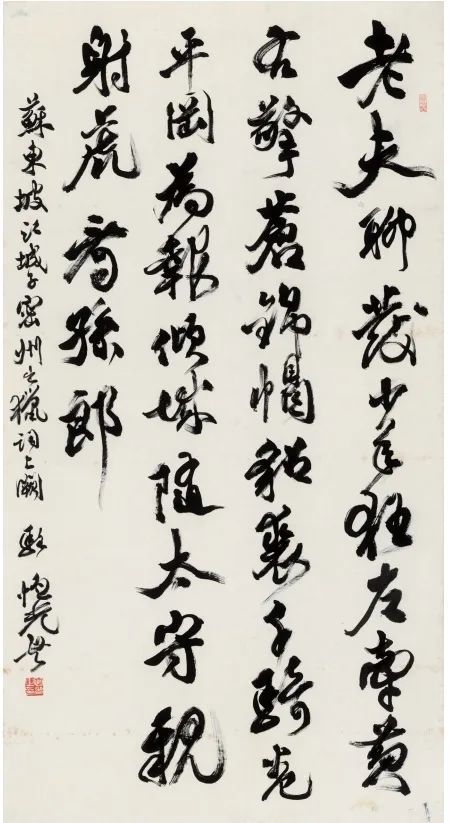 老夫聊發少年狂左牽黃
右擎蒼錦帽貂裘千騎卷
平岡為報傾城隨太守親
射虎看孫郎
蘇東坡江城子密州出獵詞上闋